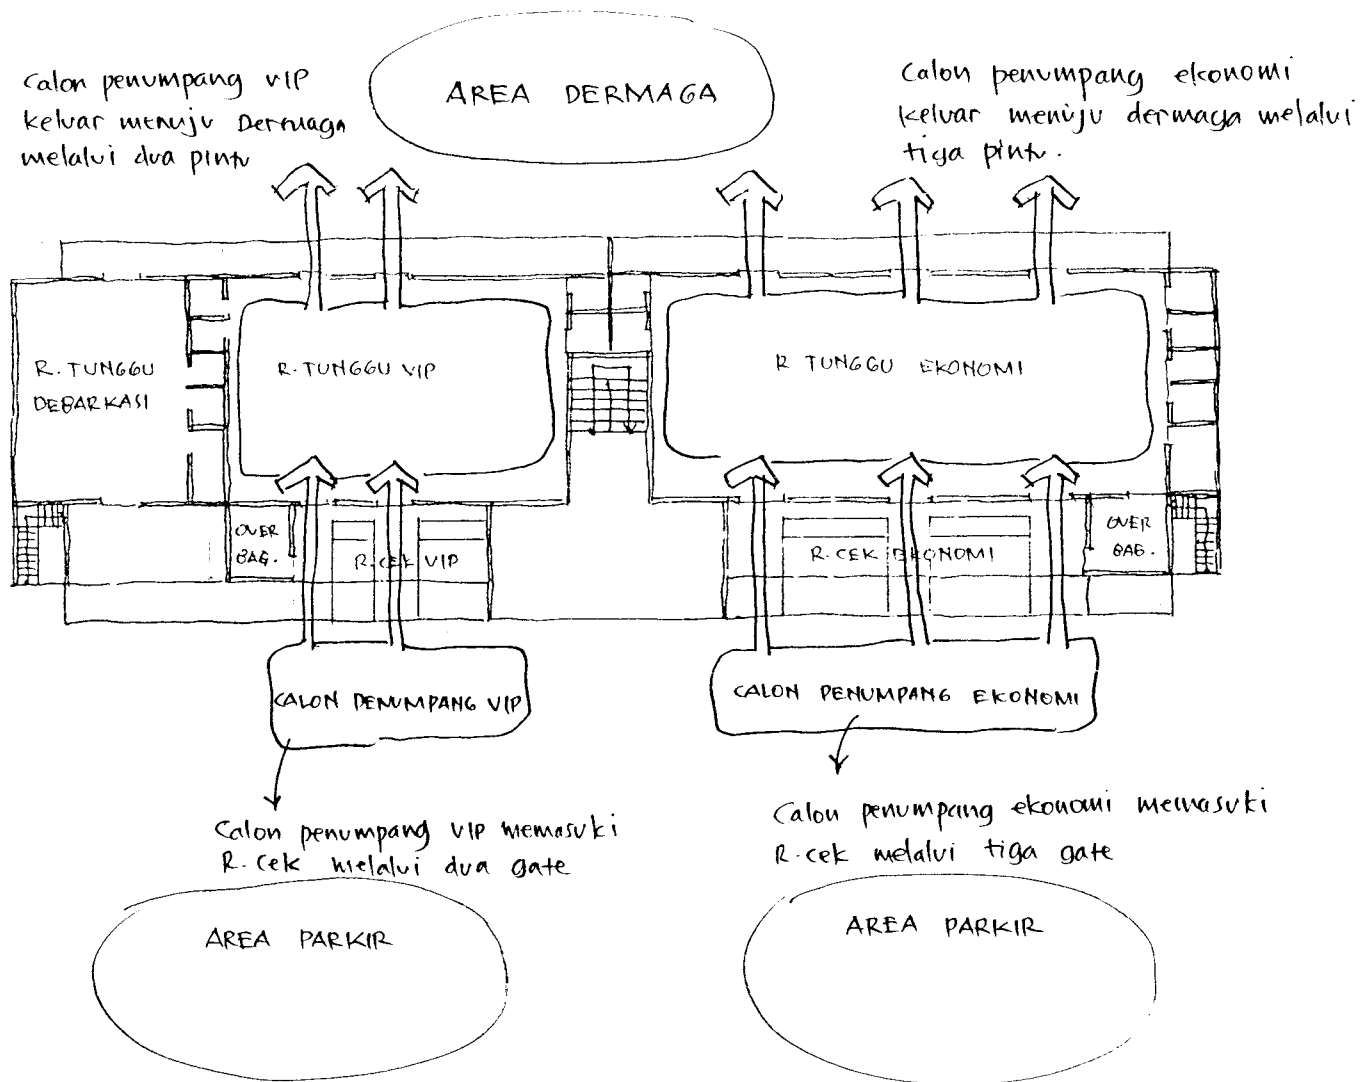 Calon penumpang VIP
keluar menuju Dermaga
melalui dua pintu
AREA DERMAGA
Calon penumpang ekonomi
keluar menuju dermaga melalui
tiga pintu.
R. TUNGGU
DEBARKASI
R. TUNGGU VIP
R TUNGGU EKONOMI
OVER
BAG.
R. CEK VIP
R. CEK EKONOMI
OVER
BAG.
CALON PENUMPANG VIP
CALON PENUMPANG EKONOMI
Calon penumpang VIP memasuki
R. Cek melalui dua gate
Calon penumpang ekonomi memasuki
R. cek melalui tiga gate
AREA PARKIR
AREA PARKIR